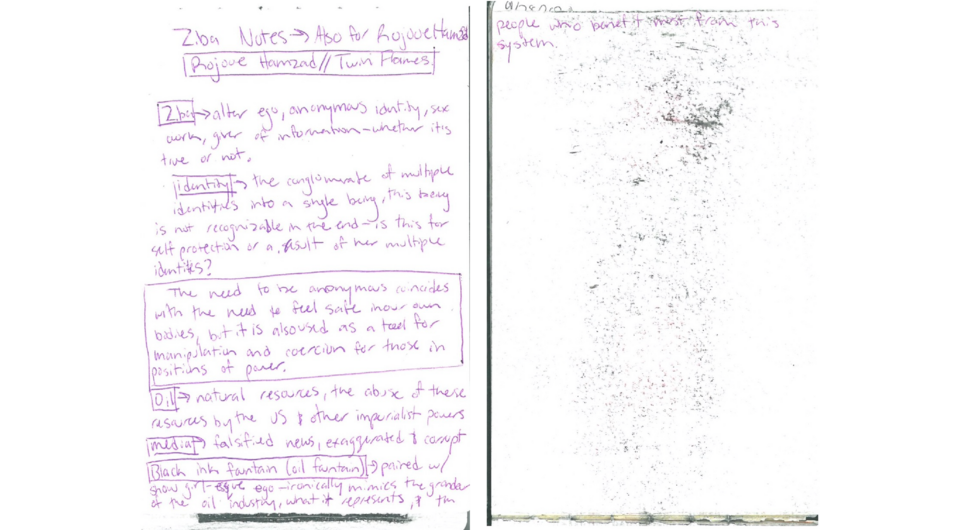 Ziba Notes → Also for Rojove Hamzad
Rojove Hamzad // Twin Flames
Ziba → alter ego, anonymous identity, sex
work, giver of information - whether it is
true or not.
identity → the conglomerate of multiple
identities into a single being, this being
is not recognizable in the end - is this for
self protection or a result of her multiple
identites?
The need to be anonymous coincides
with the need to feel safe in our own
bodies, but it is also used as a tool for
manipulation and coercion for those in
positions of power.
Oil → natural resources, the abuse of these
resources by the US & other imperialist powers
media → falsified news, exaggerated & corrupt
Black ink fountain (oil fountain) → paired w/
show girl-esque ego - ironically mimics the grandeur
of the oil industry, what it represents, & the
people who benefit most from this
system.